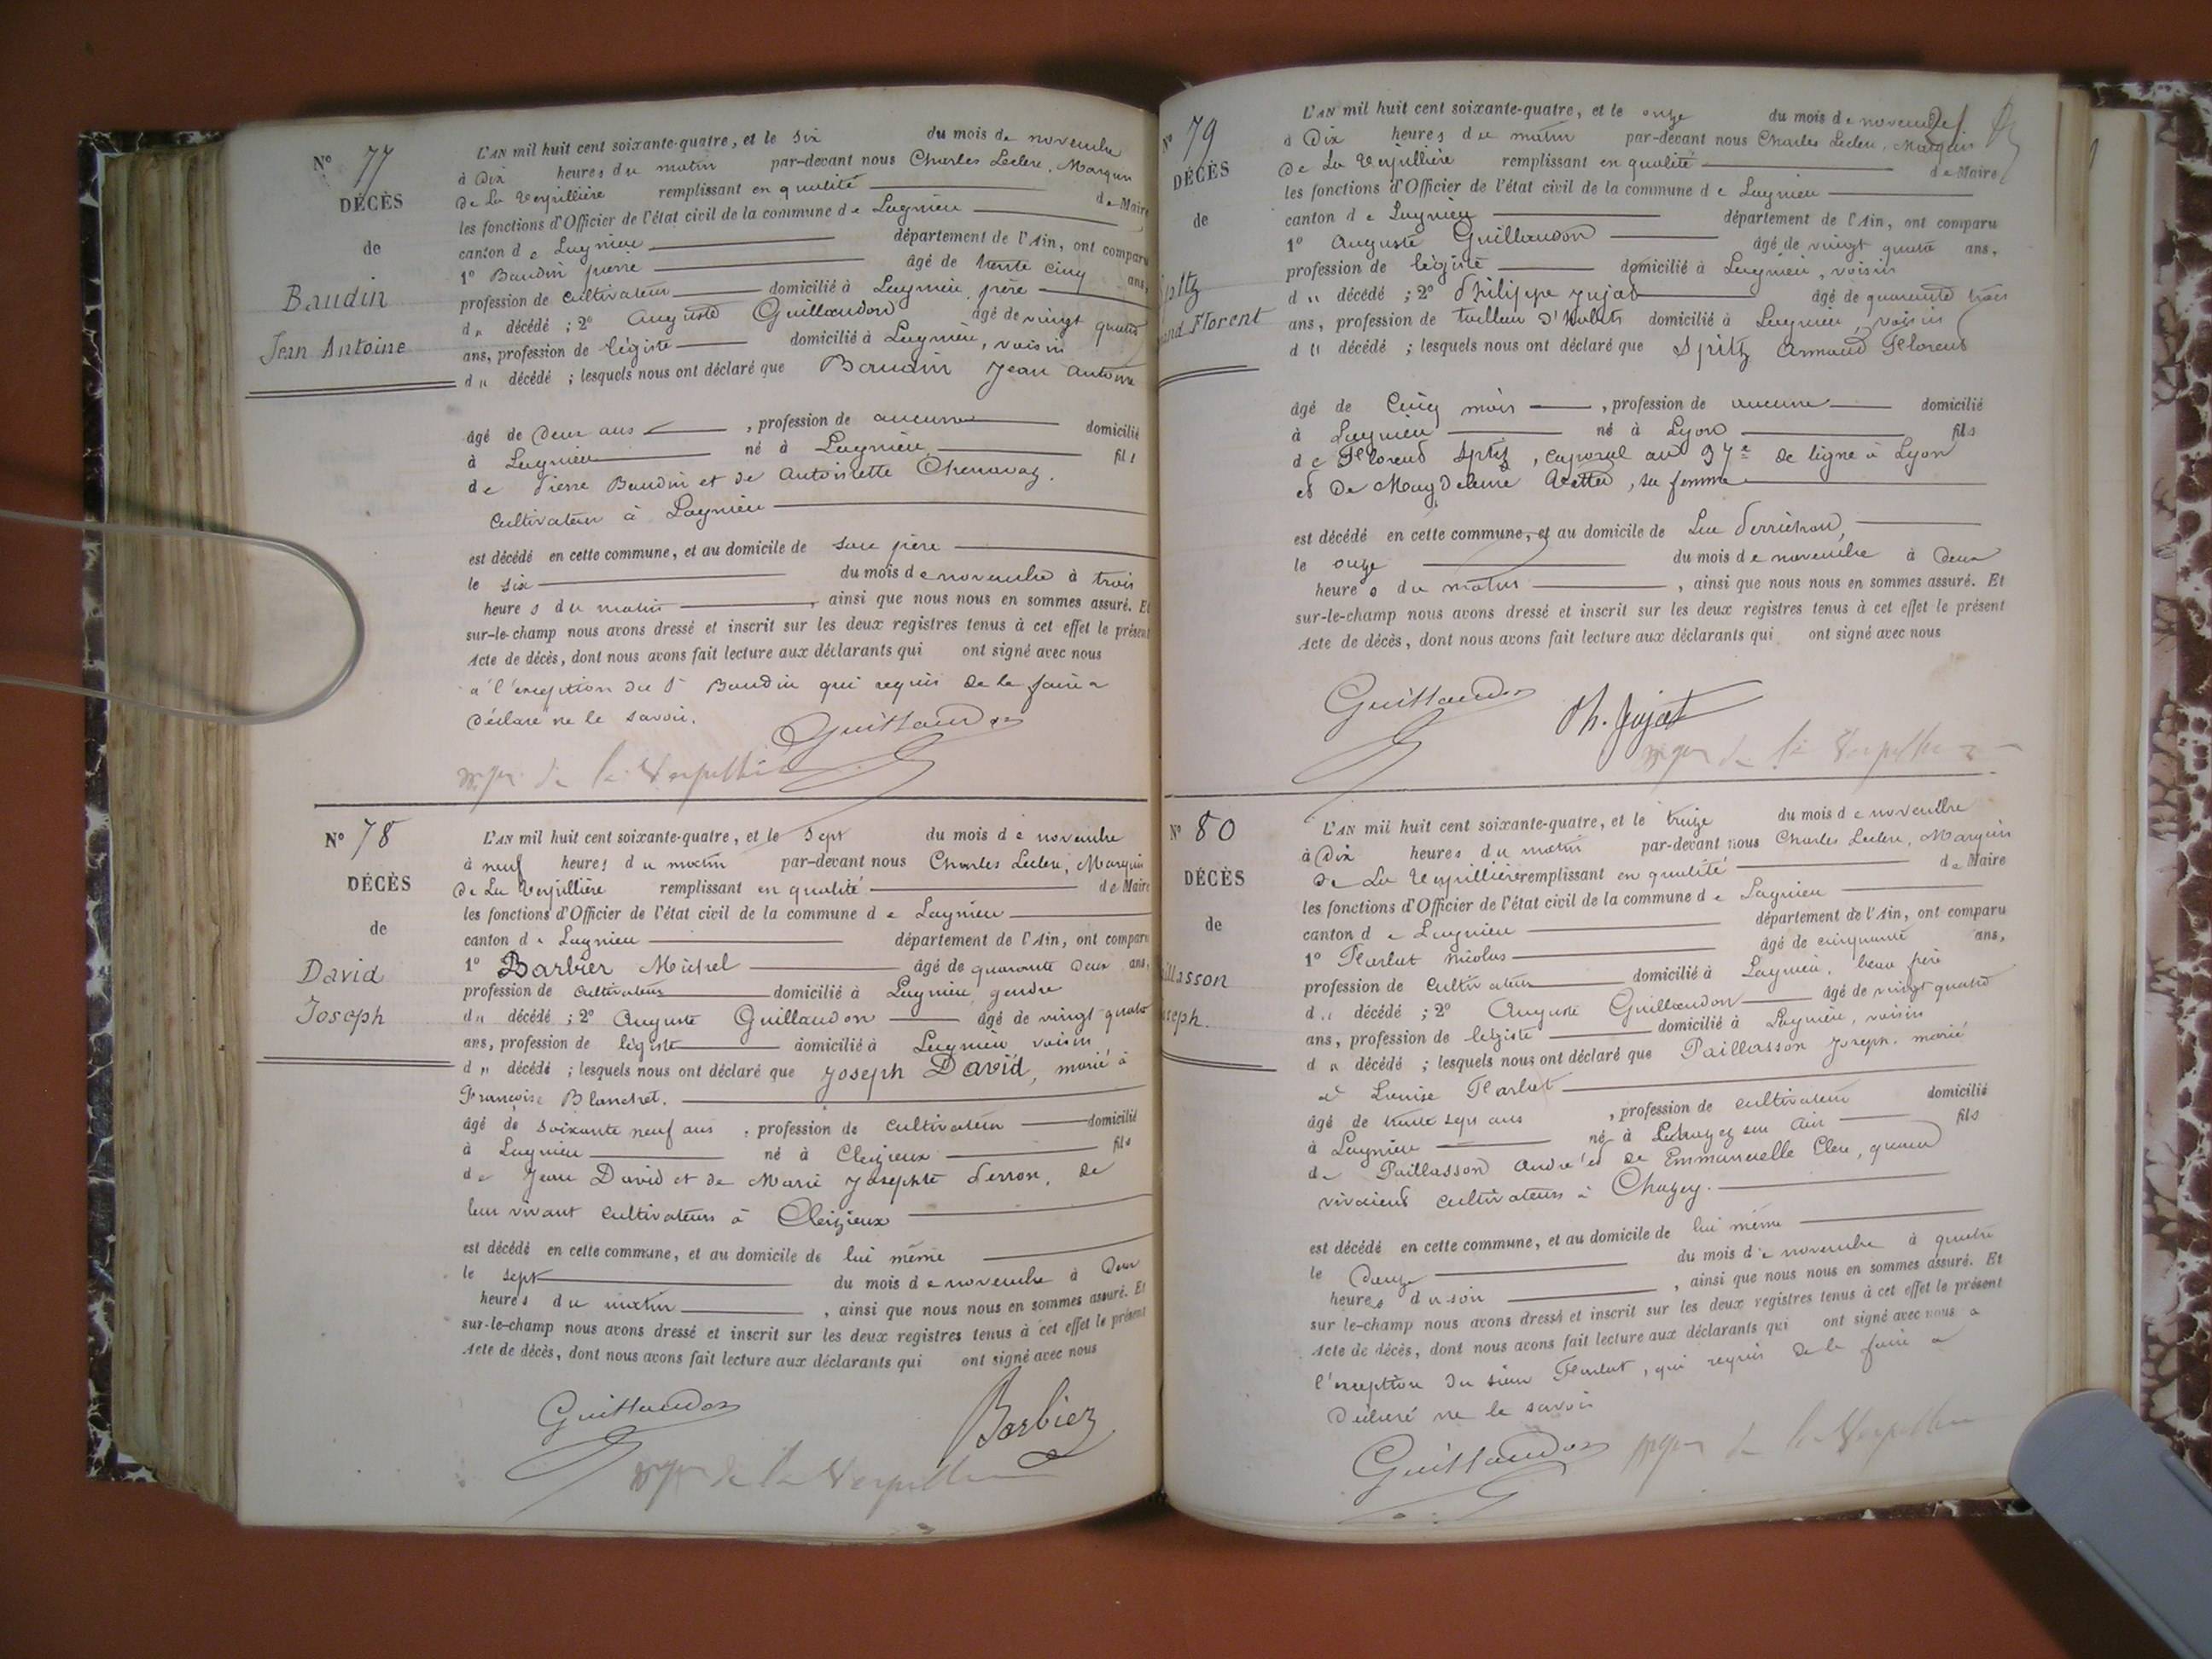 N° 77
DÉCÈS
de
Baudin
Jean Antoine
L'AN mil huit cent soixante-quatre, et le six du mois de novembre
à Dix heures du matin par-devant nous Charles Leclerc, Marquis
de La Verpillière remplissant en qualité de Maire
les fonctions d'Officier de l'état civil de la commune de Lagnieu
canton de Lagnieu département de l'Ain, ont comparu
1° Baudin pierre âgé de trente cinq ans,
profession de cultivateur domicilié à Lagnieu, père
du décédé ; 2° Auguste Guillaudon âgé de vingt quatre
ans, profession de légiste domicilié à Lagnieu, voisin
du décédé ; lesquels nous ont déclaré que Baudin Jean antoine
âgé de Deux ans , profession de aucune domicilié
à Lagnieu né à Lagnieu fils
de Pierre Baudin et de Antoinette Chenavaz,
Cultivateur à Lagnieu
est décédé en cette commune, et au domicile de son père
le six du mois de novembre à trois
heures du matin , ainsi que nous nous en sommes assuré. Et
sur-le-champ nous avons dressé et inscrit sur les deux registres tenus à cet effet le présent
Acte de décès, dont nous avons fait lecture aux déclarants qui ont signé avec nous
a l'exception du Sr Baudin qui requis de le faire a
Déclaré ne le savoir. Guillaudon
mqis de la Verpillière
N° 78
DÉCÈS
de
David
Joseph
L'AN mil huit cent soixante-quatre, et le Sept du mois de novembre
à neuf heures du matin par-devant nous Charles Leclerc, Marquis
De La Verpillière remplissant en qualité de Maire
les fonctions d'Officier de l'état civil de la commune de Lagnieu
canton de Lagnieu département de l'Ain, ont comparu
1° Barbier Michel âgé de quarante Deux ans,
profession de cultivateur domicilié à Lagnieu gendre
du décédé ; 2° Auguste Guillaudon âgé de vingt quatre
ans, profession de légiste domicilié à Lagnieu voisin
du décédé ; lesquels nous ont déclaré que Joseph David, marié à
Françoise Blanchet.
âgé de soixante neuf ans , profession de cultivateur domicilié
à Lagnieu né à Cleyzieux fils
de Jean David et de Marie Josephte Perron, de
leur vivant cultivateurs à Cleizieux
est décédé en cette commune, et au domicile de lui même
le sept du mois de novembre à Deux
heures du matin , ainsi que nous nous en sommes assuré. Et
sur-le-champ nous avons dressé et inscrit sur les deux registres tenus à cet effet le présent
Acte de décès, dont nous avons fait lecture aux déclarants qui ont signé avec nous
Guillaudon Barbier
mqis de la Verpillière
N° 79
DÉCÈS
de
Spitz
and Florent
L'AN mil huit cent soixante-quatre, et le onze du mois de novembre
à Dix heures du matin par-devant nous Charles Leclerc, Marquis
De La Verpillière remplissant en qualité de Maire
les fonctions d'Officier de l'état civil de la commune de Lagnieu
canton de Lagnieu département de l'Ain, ont comparu
1° Auguste Guillaudon âgé de vingt quatre ans,
profession de légiste domicilié à Lagnieu, voisin
du décédé ; 2° Philippe Jujat âgé de quarante trois
ans, profession de tailleur d'habits domicilié à Lagnieu, voisin
du décédé ; lesquels nous ont déclaré que Spitz Armand Florent
âgé de Cinq mois , profession de aucune domicilié
à Lagnieu né à Lyon fils
de Florent Spitz, caporal au 97e de ligne à Lyon
et De Magdeleine , sa femme
est décédé en cette commune, et au domicile de Luc Perrichon,
le onze du mois de novembre à Deux
heures du matin , ainsi que nous nous en sommes assuré. Et
sur-le-champ nous avons dressé et inscrit sur les deux registres tenus à cet effet le présent
Acte de décès, dont nous avons fait lecture aux déclarants qui ont signé avec nous
Guillaudon Ph. Jujat
mqis de la Verpillière
N° 80
DÉCÈS
de
illasson
seph.
L'AN mil huit cent soixante-quatre, et le treize du mois de novembre
à Dix heures du matin par-devant nous Charles Leclerc, Marquis
De La Verpillière remplissant en qualité de Maire
les fonctions d'Officier de l'état civil de la commune de Lagnieu
canton de Lagnieu département de l'Ain, ont comparu
1° Harlut nicolas âgé de cinquante ans,
profession de Cultivateur domicilié à Lagnieu, beau frère
du décédé ; 2° Auguste Guillaudon âgé de vingt quatre
ans, profession de légiste domicilié à Lagnieu, voisin
du décédé ; lesquels nous ont déclaré que Paillasson Joseph. marié
à Louise Harlut
âgé de trente sept ans , profession de cultivateur domicilié
à Lagnieu né à Chazey sur Ain fils
de Paillasson André et de Emmanuelle Clerc, quand
vivaient cultivateurs à Chazey.
est décédé en cette commune, et au domicile de lui même
le Douze du mois de novembre à quatre
heures du soir , ainsi que nous nous en sommes assuré. Et
sur le-champ nous avons dressé et inscrit sur les deux registres tenus à cet effet le présent
Acte de décès, dont nous avons fait lecture aux déclarants qui ont signé avec nous a
l'exception du sieur Harlut, qui requis de le faire a
Déclaré ne le savoir
Guillaudon mqis de la Verpillière